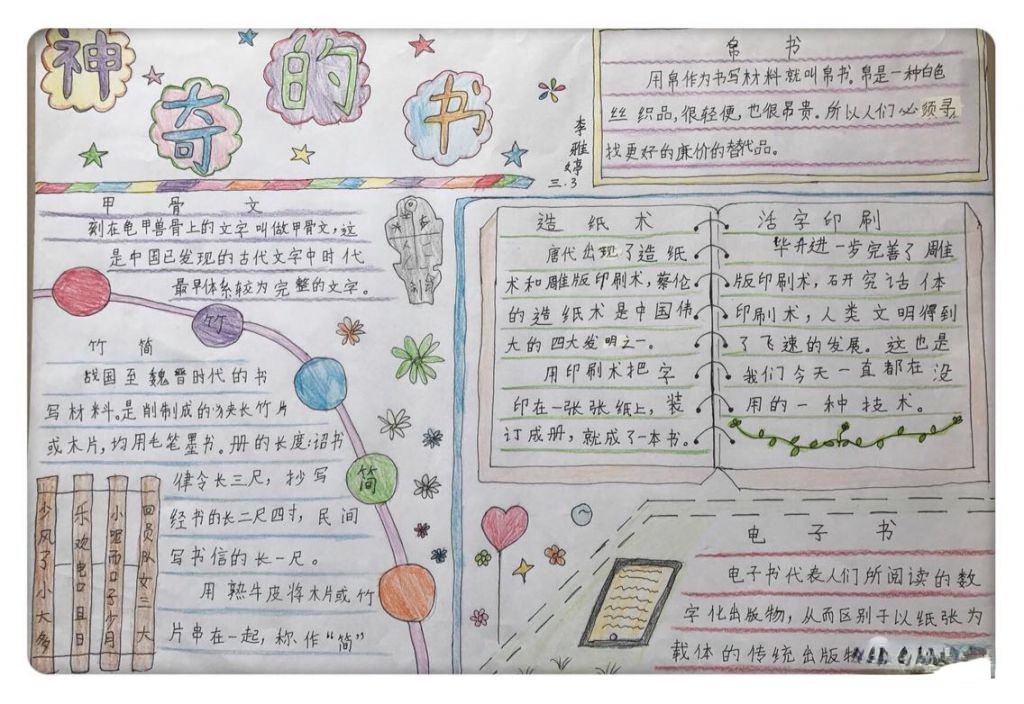 神奇的书
李雅婷
三.3
帛书
用帛作为书写材料就叫帛书。帛是一种白色
丝织品,很轻便,也很昂贵。所以人们必须寻
找更好的廉价的替代品。
甲骨文
刻在龟甲兽骨上的文字叫做甲骨文,这
是中国已发现的古代文字中时代
最早体系较为完整的文字。
竹简
竹简
战国至魏晋时代的书
写材料。是削制成的狭长竹片
或木片,均用毛笔墨书。册的长度:诏书
律令长三尺,抄写
经书的长二尺四寸,民间
写书信的长一尺。
用熟牛皮将木片或竹
片串在一起,称作“简”
造纸术
唐代出现了造纸
术和雕版印刷术,蔡伦
的造纸术是中国伟
大的四大发明之一。
用印刷术把字
印在一张张纸上,装
订成册,就成了一本书。
活字印刷
毕升进一步完善了雕
版印刷术,研究活体
印刷术,人类文明得到
了飞速的发展。这也是
我们今天一直都在没
用的一种技术。
电子书
电子书代表人们所阅读的数
字化出版物,从而区别于以纸张为
载体的传统出版物